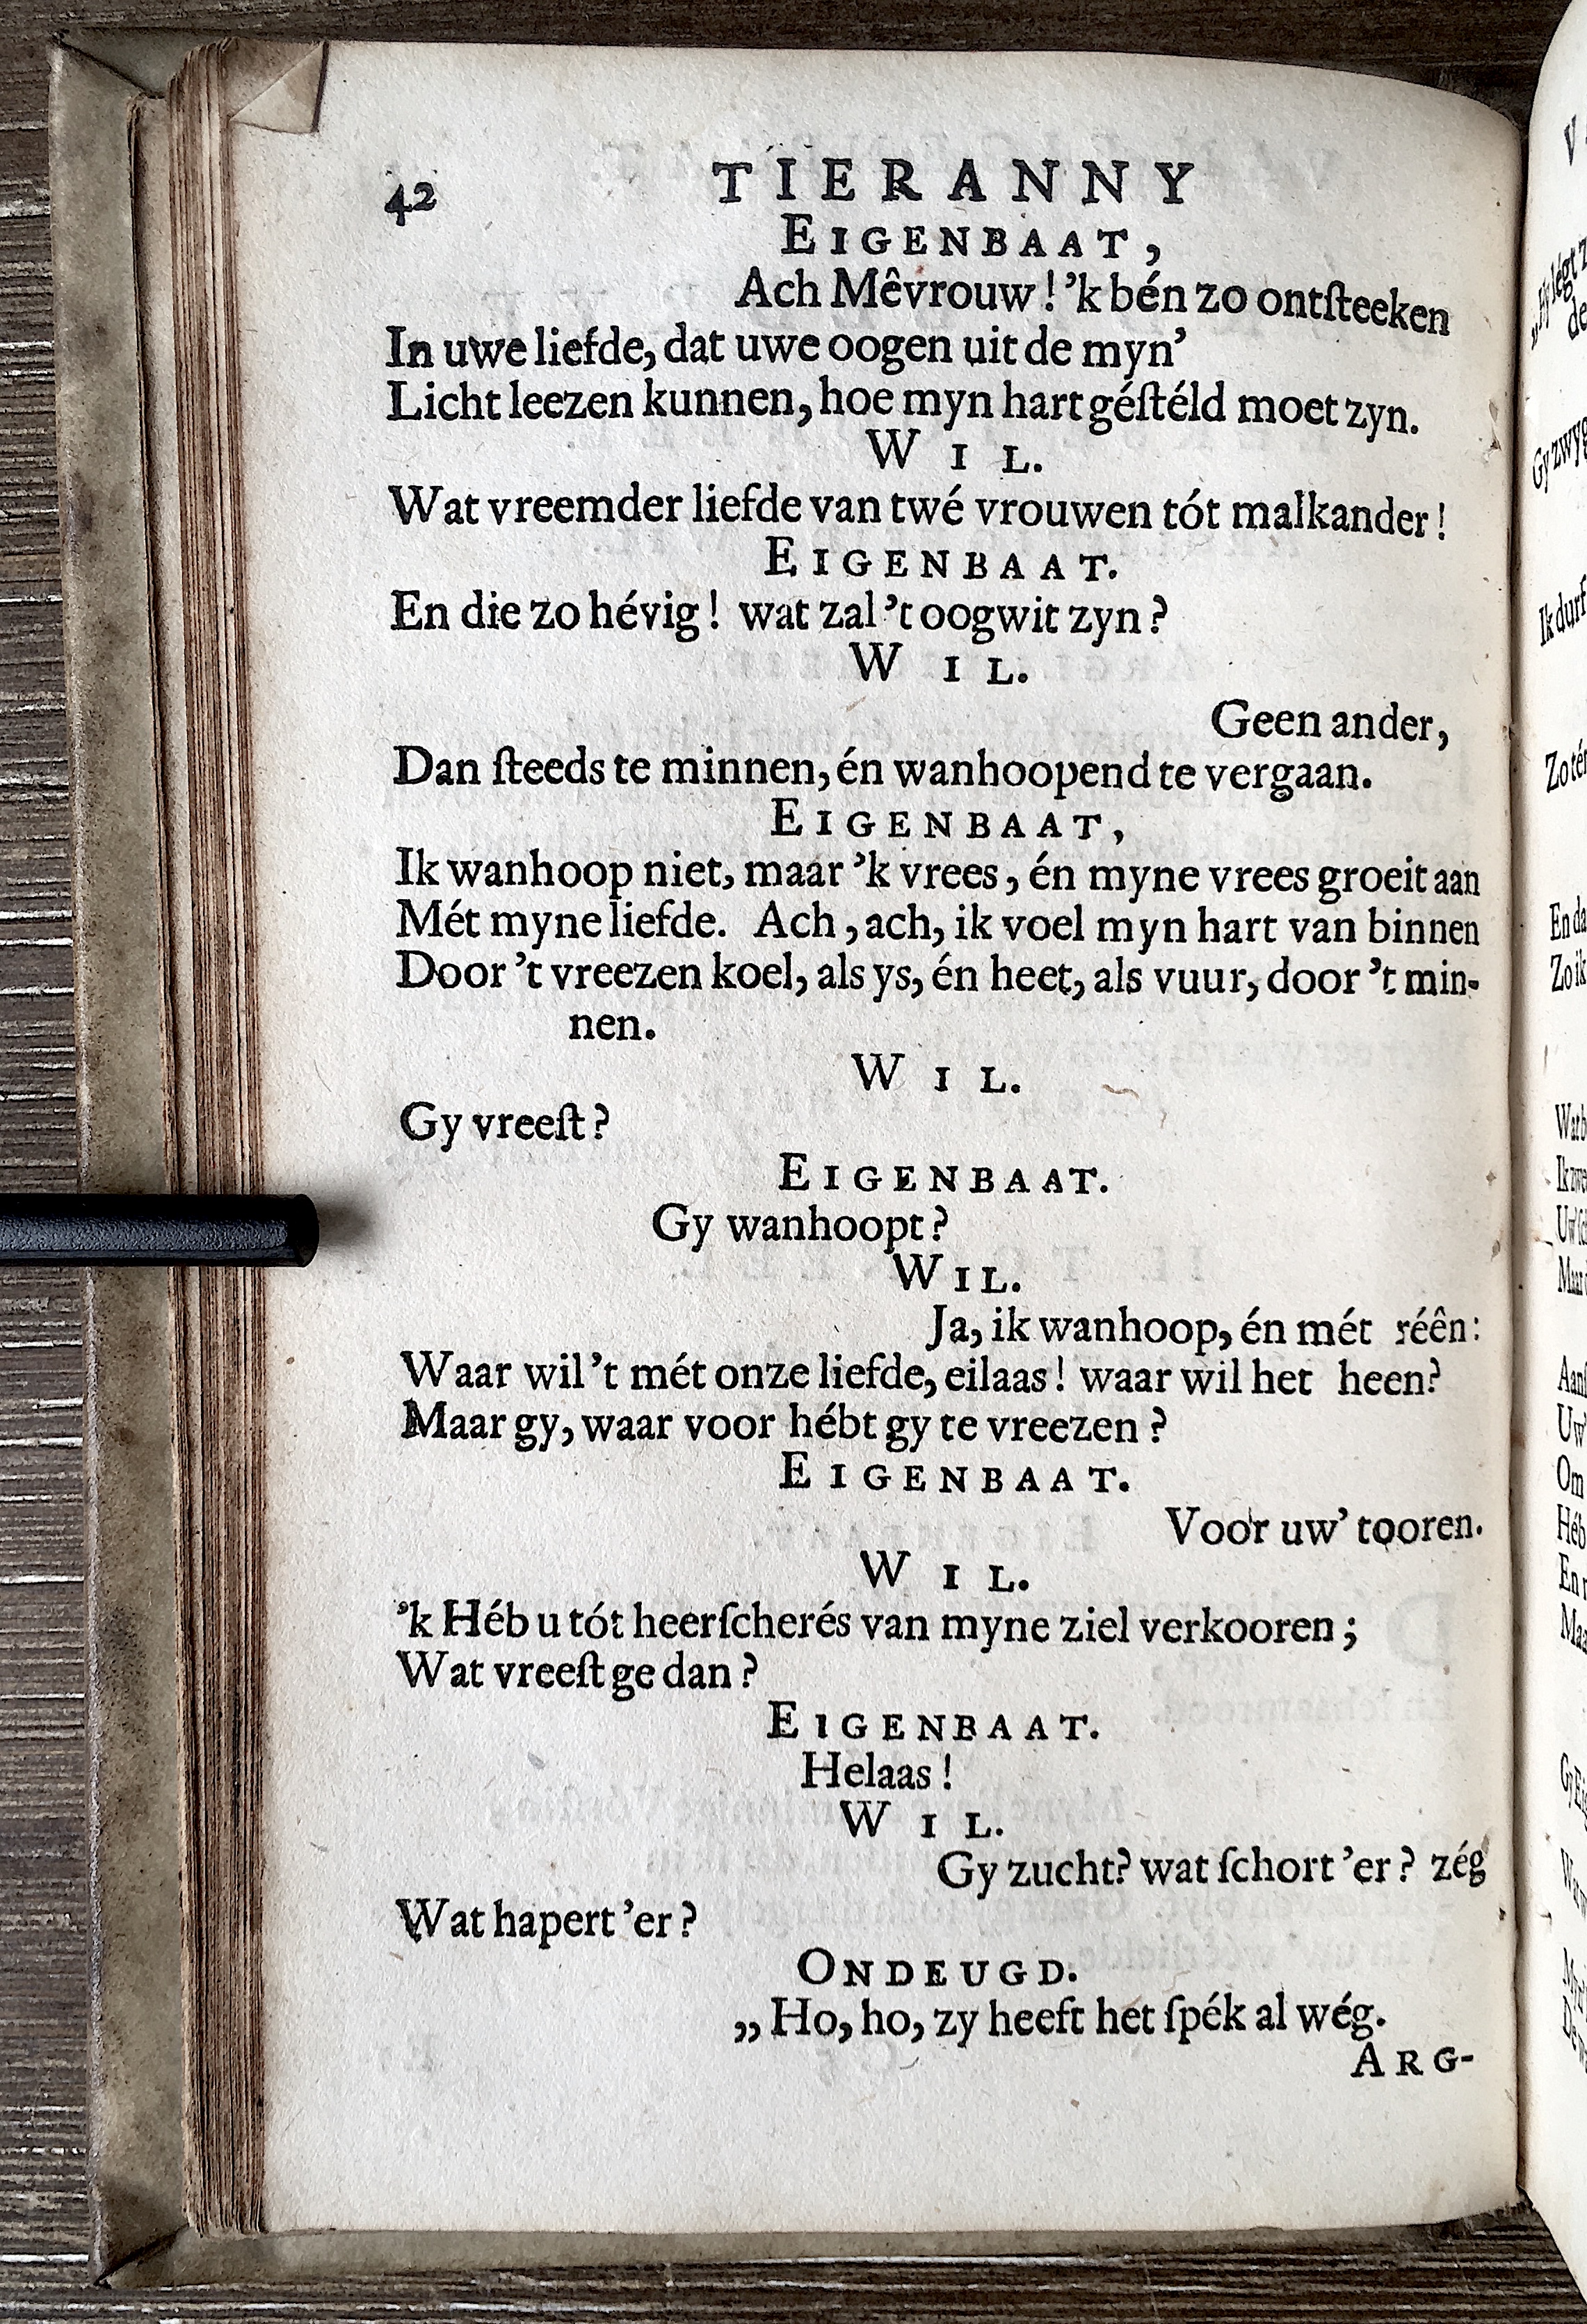 42 TIERANNY
EIGENBAAT,
Ach Mêvrouw! ’k bén zo ontſteeken
In uwe liefde, dat uwe oogen uit de myn’
Licht leezen kunnen, hoe myn hart géſtéld moet zyn.
WIL.
Wat vreemder liefde van twé vrouwen tót malkander!
EIGENBAAT.
En die zo hévig! wat zal ’t oogwit zyn?
WIL.
Geen ander,
Dan ſteeds te minnen, én wanhoopend te vergaan.
EIGENBAAT,
Ik wanhoop niet, maar ’k vrees, én myne vrees groeit aan
Mét myne liefde. Ach, ach, ik voel myn hart van binnen
Door ’t vreezen koel, als ys, én heet, als vuur, door ’t min-
nen.
WIL.
Gy vreeſt?
EIGENBAAT.
Gy wanhoopt?
WIL.
Ja, ik wanhoop, én mét réên:
Waar wil ’t mét onze liefde, eilaas! waar wil het heen?
Maar gy, waar voor hébt gy te vreezen?
EIGENBAAT.
Voor uw’ tooren.
WIL.
’k Héb u tót heerſcherés van myne ziel verkooren;
Wat vreeſt ge dan?
EIGENBAAT.
Helaas!
WIL.
Gy zucht? wat ſchort ’er? zég
Wat hapert ’er?
ONDEUGD.
„Ho, ho, zy heeft het ſpék al wég.
ARG-